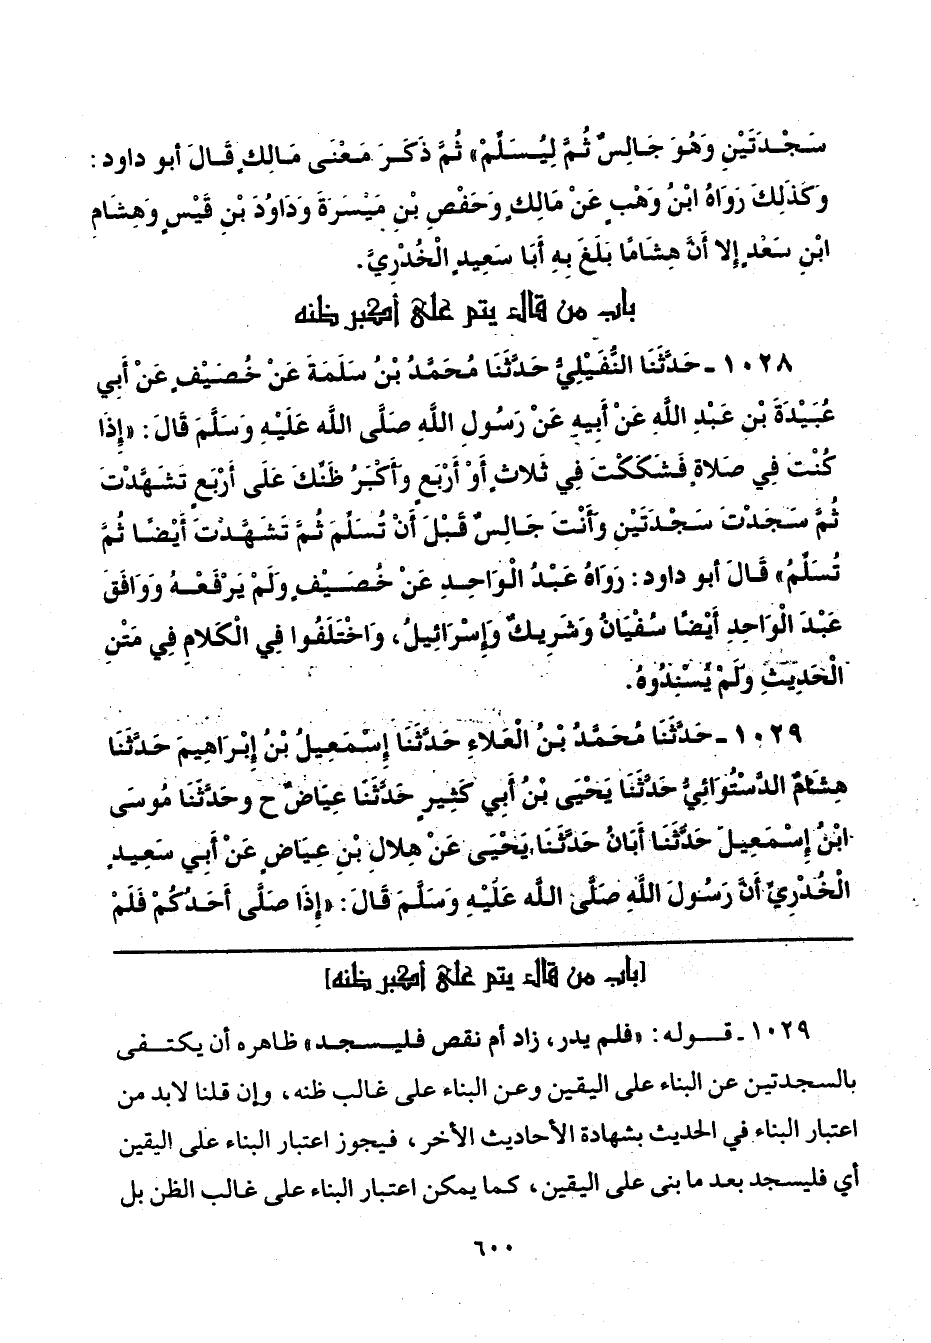 سَجْدَتَيْنِ وَهُوَ جَالِسٌ ثُمَّ لِيُسَلِّمْ» ثُمَّ ذَكَرَ مَعْنَى مَالِكٍ قَالَ أبو داود :
وَكَذَلِكَ رَوَاهُ ابْنُ وَهْبٍ عَنْ مَالِكٍ وَحَفْصِ بْنِ مَيْسَرَةَ وَدَاوُدَ بْنِ قَيْسٍ وَهِشَامِ
ابْنِ سَعْدٍ إلا أَنَّ هِشَامًا بَلَغَ بِهِ أَبَا سَعِيدٍ الْخُدْرِيَّ.
باب من قال يتم على أكبر ظنه
١٠٢٨ ـ حَدَّثَنَا النُّفَيْلِيُّ حَدَّثَنَا مُحَمَّدُ بْنُ سَلَمَةَ عَنْ خُصَيْفٍ عَنْ أَبِي
عُبَيْدَةَ بْنِ عَبْدِ اللَّهِ عَنْ أَبِيهِ عَنْ رَسُولِ اللَّهِ صَلَّى اللَّه عَلَيْهِ وَسَلَّمَ قَالَ: «إِذَا
كُنْتَ فِي صَلاةٍ فَشَكَكْتَ فِي ثَلاثٍ أَوْ أَرْبَعٍ وَأَكْبَرُ ظَنِّكَ عَلَى أَرْبَعٍ تَشَهَّدْتَ
ثُمَّ سَجَدْتَ سَجْدَتَيْنِ وَأَنْتَ جَالِسٌ قَبْلَ أَنْ تُسَلِّمَ ثُمَّ تَشَهَّدْتَ أَيْضًا ثُمَّ
تُسَلِّمُ» قَالَ أبو داود : رَوَاهُ عَبْدُ الْوَاحِدِ عَنْ خُصَيْفٍ وَلَمْ يَرْفَعْهُ وَوَافَقَ
عَبْدَ الْوَاحِدِ أَيْضًا سُفْيَانُ وَشَرِيكٌ وَإِسْرَائِيلُ، وَاخْتَلَفُوا فِي الْكَلامِ فِي مَتْنِ
الْحَدِيثِ وَلَمْ يُسْنِدُوهُ.
١٠٢٩ ـ حَدَّثَنَا مُحَمَّدُ بْنُ الْعَلاءِ حَدَّثَنَا إِسْمَعِيلُ بْنُ إِبْرَاهِيمَ حَدَّثَنَا
هِشَامٌ الدَّسْتُوَائِيُّ حَدَّثَنَا يَحْيَى بْنُ أَبِي كَثِيرٍ حَدَّثَنَا عِيَاضٌ ح وحَدَّثَنَا مُوسَى
ابْنُ إِسْمَعِيلَ حَدَّثَنَا أَبَانُ حَدَّثَنَا يَحْيَى عَنْ هِلالِ بْنِ عِيَاضٍ عَنْ أَبِي سَعِيدٍ
الْخُدْرِيِّ أَنَّ رَسُولَ اللَّهِ صَلَّى اللَّه عَلَيْهِ وَسَلَّمَ قَالَ: «إِذَا صَلَّى أَحَدُكُمْ فَلَمْ
[باب من قال يتم على أكبر ظنه]
١٠٢٩ ـ قوله: «فلم يدر، زاد أم نقص فليسجد» ظاهره أن يكتفى
بالسجدتين عن البناء على اليقين وعن البناء على غالب ظنه، وإن قلنا لابد من
اعتبار البناء في الحديث بشهادة الأحاديث الأخر، فيجوز اعتبار البناء على اليقين
أي فليسجد بعد ما بنى على اليقين، كما يمكن اعتبار البناء على غالب الظن بل
٦٠٠